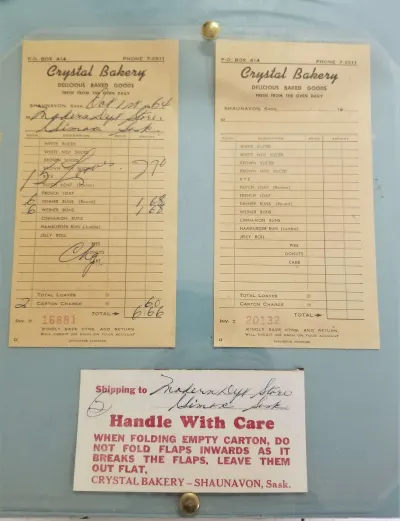 P.O. BOX 414 PHONE 7-2511
Crystal Bakery
DELICIOUS BAKED GOODS
FRESH FROM THE OVEN DAILY
SHAUNAVON, SASK. Oct 1st 64
Modern Dept Store
Simmie Sask.
WHITE SLICED
WHITE NOT SLICED
BROWN SLICED 2 70
FRENCH LOAF
6 DINNER BUNS (Round) 1,68
6 WEINER BUNS 1,68
CINNAMON BUNS
HAMBURGER BUN (Jumbo)
JELLY ROLL
PIES
Chg.
CAKE
TOTAL LOAVES @
2 CARTON CHARGE @ 60
INV. # 16881 TOTAL 6.66
KINDLY SAVE CTNS. AND RETURN
WILL CREDIT OR CASH ON YOUR INVOICE
P.O. BOX 414 PHONE 7-2511
Crystal Bakery
DELICIOUS BAKED GOODS
FRESH FROM THE OVEN DAILY
SHAUNAVON, SASK. 19
M
WHITE SLICED
WHITE NOT SLICED
BROWN SLICED
BROWN NOT SLICED
RYE
FRENCH LOAF
DINNER BUNS (Round)
WEINER BUNS
CINNAMON BUNS
HAMBURGER BUN (Jumbo)
JELLY ROLL
PIES
DONUTS
CAKE
TOTAL LOAVES @
CARTON CHARGE @
INV. # 20132 TOTAL
KINDLY SAVE CTNS. AND RETURN
WILL CREDIT OR CASH ON YOUR INVOICE
Shipping to Modern Dept Store
Sask.
Handle With Care
WHEN FOLDING EMPTY CARTON, DO
NOT FOLD FLAPS INWARDS AS IT
BREAKS THE FLAPS. LEAVE THEM
OUT FLAT.
CRYSTAL BAKERY – SHAUNAVON, Sask.